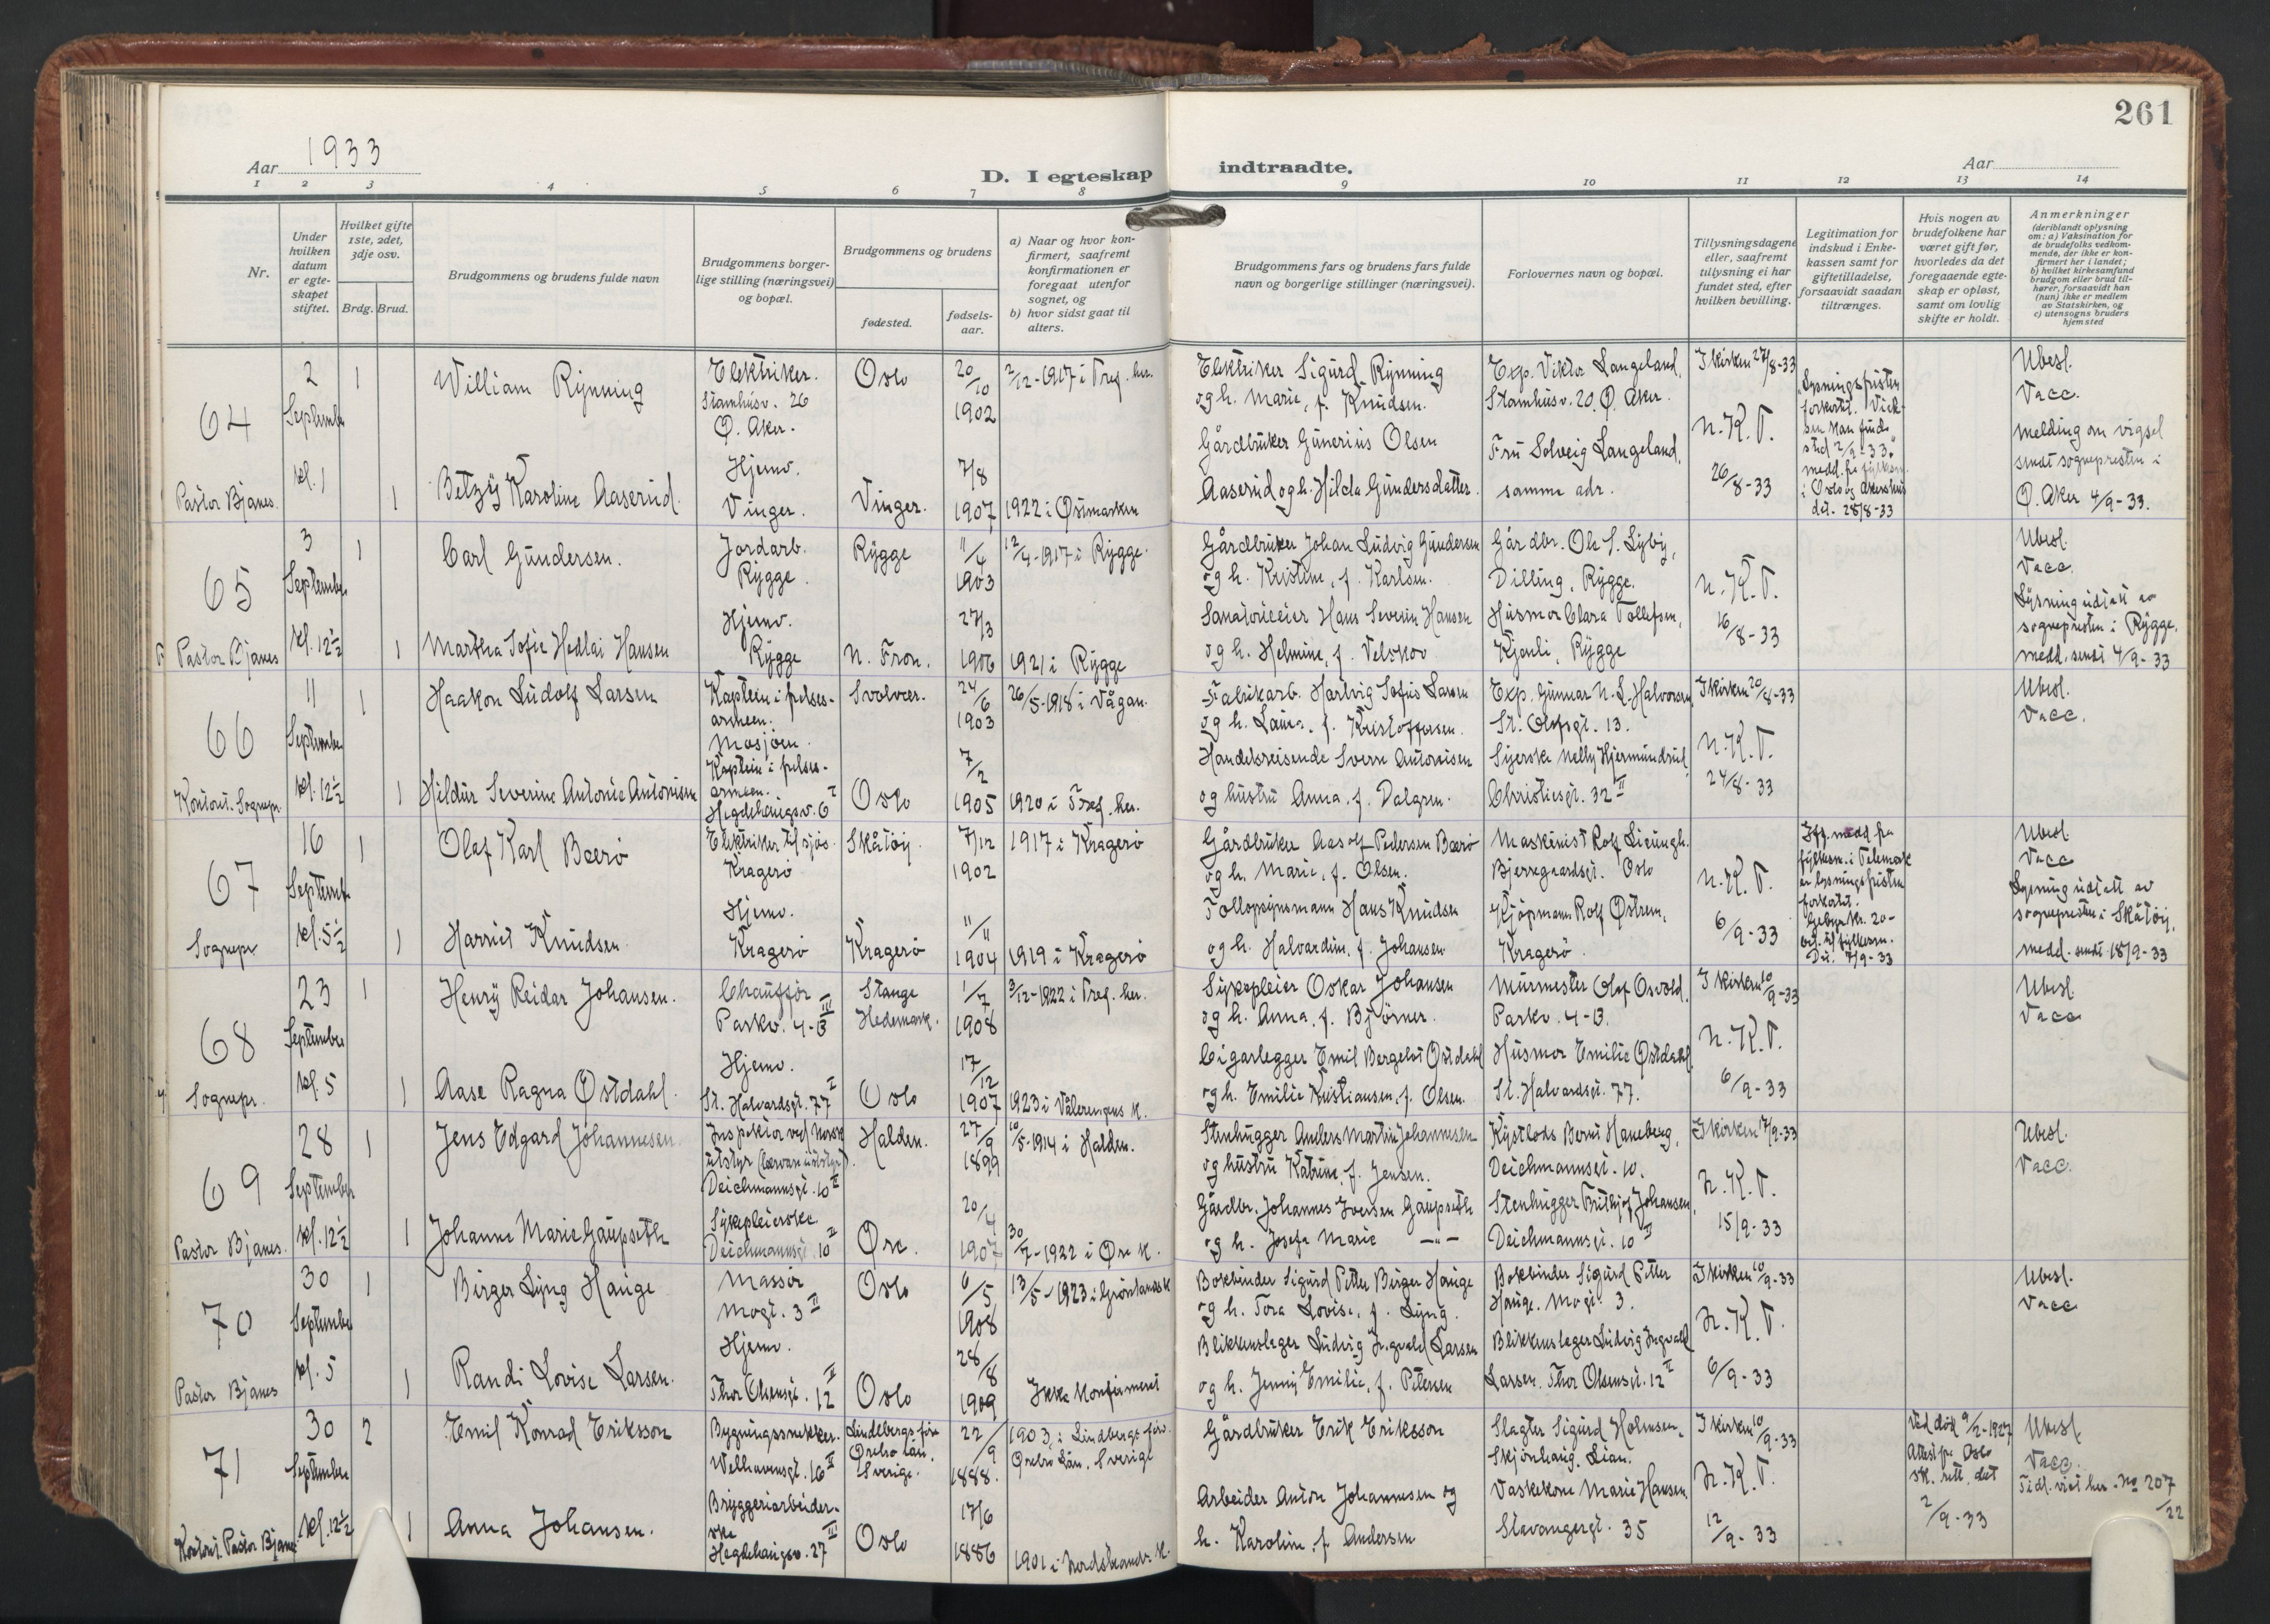 261
Aar 1933
D. I egteskap indtraadte.
Aar
1 2 3 4 5 6 7 8 9 10 11 12 13 14
Nr.
Under hvilken datum er egte-skapet stiftet.
Hvilket gifte 1ste, 2det, 3dje osv.
Brdg. Brud.
Brudgommens og brudens fulde navn
Brudgommens borger-lige stilling (næringsvei) og bopæl.
Brudgommens og brudens
fødested.
fødsels-aar.
a) Naar og hvor kon-firmert, saafremt konfirmationen er foregaat utenfor sognet, og
b) hvor sidst gaat til alters.
Brudgommens fars og brudens fars fulde navn og borgerlige stillinger (næringsvei).
Forlovernes navn og bopæl.
Tillysningsdagene eller, saafremt tillysning ei har fundet sted, efter hvilken bevilling.
Legitimation for indskud i Enke-kassen samt for giftetilladelse, forsaavidt saadan tiltrænges.
Hvis nogen av brudefolkene har været gift før, hvorledes da det foregaaende egte-skap er opløst, samt om lovlig skifte er holdt.
Anmerkninger (deriblandt oplysning om: a) Vaksination for de brudefolks vedkom-mende, der ikke er kon-firmert her i landet; b) hvilket kirkesamfund brudgom eller brud til-hører, forsaavidt han (hun) ikke er medlem av Statskirken, og c) utensogns bruders hjemsted
64
2 September kl. 1
Pastor Bjanes.
1 William Rynning
Elektriker. Stamhusv. 26 Ø. Aker.
Oslo
20/10 1902
2/12-1917 i Tref. her.
Elektriker Sigurd Rynning og h. Marie, f. Knudsen.
Exp. Viktor Langeland, Stamhusv. 20. Ø. Aker.
I kirken 27/8-33
N.K.T.
26/8-33
Lysningsfristen forkortet. Viel-sen kan finde sted 2/9-33." medd. fra fylkesm. i Oslo og Akershus dat. 28/8-33
Ubesl.
Vacc.
Melding om vigsel sendt sognepresten i Ø. Aker 4/9-33.
1 Betzy Karoline Aaserud.
Hjemv. Vinger.
Vinger.
7/8 1907
1922 i Østmarken
Gårdbruker Gunerius Olsen Aaserud og h. Hilda Gundersdatter.
Fru Solveig Langeland, samme adr.
65
3 September kl. 12½
Pastor Bjanes
1 Carl Gundersen.
Jordarb. Rygge.
Rygge
11/4 1903
12/4-1917 i Rygge.
Gårdbruker Johan Ludvig Gundersen og h. Kristine, f. Karlsen.
Gårdbr. Ole S. Lyby, Dilling, Rygge.
N.K.T.
16/8-33
Ubesl.
Vacc.
Lysning utstett av sognepresten i Rygge. medd. sendt 4/9-33
1 Martha Sofie Hedlai Hansen
Hjemv. Rygge
N. Fron.
27/3 1906
1921 i Rygge
Sanatorieeier Hans Severin Hansen og h. Helmine, f. Velskov
Husmor Clara Tollefsen, Kjenli, Rygge
66
11 September kl. 12½
Kontoret. Sognepr.
1 Haakon Ludolf Larsen
Kaptein i frelses-armeen. Mosjøen.
Svolvær.
24/6 1903
26/5-1918 i Vågan.
Fabrikarb. Hartvig Sofus Larsen og h. Laura, f. Kristoffersen.
Exp. Gunnar N. L. Halvorsen, St. Olafsgt. 13.
I kirken 20/8-33
N.K.T.
24/8-33
Ubesl.
Vacc.
1 Hildur Severine Antonie Antonisen
Kaptein i frelses-armeen. Hegdehaugsv. 6 I
Oslo
7/2 1905
1920 i Tref. her.
Handelsreisende Sverre Antonisen og hustru Anna, f. Dalgren.
Syerske Nelly Hjermundrud, Christiesgt. 32 II
67
16 Septemb. kl. 5½
Sognepr
1 Olaf Karl Bærø
Elektriker til sjøs. Kragerø
Skåtøy
7/12 1902
1917 i Kragerø
Gårdbruker Aasolf Pedersen Bærø og h. Marie, f. Olsen.
Maskinist Rolf Bjerregaardsgt. Oslo
N.K.T.
6/9-33
Ifg. medd. fra fylkesm. i Telemark er lysningsfristen forkortet. Gebyr kr. 20- bet. til fylkesm. Dat. 7/9-33
Ubesl.
Vacc
Lysning utstett av sognepresten i Skåtøy, medd. sendt 18/9-33
1 Harriet Knudsen
Hjemv. Kragerø
Kragerø
11/11 1904
1919 i Kragerø
Tollopsynsmann Hans Knudsen og h. Halvardine, f. Johansen
Kjøpmann Rolf Østrem, Kragerø.
68
23 September kl. 5
Sognepr.
1 Henry Reidar Johansen.
Chauffør Parkv. 4-B III
Stange Hedemark.
1/7 1908
3/12-1922 i Tref. her.
Sykepleier Oskar Johansen og h. Anna, f. Bjørner.
Murmester Olaf Osvold. Parkv. 4-B.
I kirken 10/9-33
N.K.T.
6/9-33
Ubesl.
Vacc
1 Aase Ragna Østdahl.
Hjemv. St. Halvardsgt. 77 I
Oslo
17/12 1907
1923 i Vålerengens K.
Cigarlegger Emil Bergelot Østdahl og h. Emilie Kristiansen, f. Olsen.
Husmor Emilie Østdahl, St. Halvardsgt. 77.
69
28 September kl. 12½
Pastor Bjanes.
1 Jens Edgard Johannesen
Inspektør ved Norsk utstyr Deichmannsgt. 10 II
Halden.
27/9 1899
10/5-1914 i Halden.
Stenhugger Anders Martin Johannesen og hustru Katrine, f. Jensen.
Kystlods Bernt Haneberg, Deichmannsgt. 10.
I kirken 17/9-33
N.K.T.
15/9-33
Ubesl.
Vacc.
1 Johanne Marie Gaupseth
Sykepleierske. Deichmannsgt 10 II
Øre.
20/4 1907
30/7-1922 i Øre K.
Gårdbr. Johannes Iversen Gaupseth og h. Josefa Marie —"—
Stenhugger Frithjof Johansen, Deichmannsgt. 10 II
70
30 September kl. 5
Pastor Bjanes
1 Birger Lyng Hauge
Massør Mogt. 3 II
Oslo
6/5 1908
13/5-1923 i Grønlands K
Bokbinder Sigurd Petter Birger Hauge og h. Tora Lovise, f. Lyng.
Bokbinder Sigurd Petter Hauge. Mogt. 3.
I kirken 10/9-33
N.K.T.
6/9-33
Ubesl.
Vacc
1 Randi Lovise Larsen.
Hjemv. Thor Olsensgt. 12 II
Oslo
28/8 1909
Ikke konfirmert
Blikkenslager Ludvig Ingvald Larsen og h. Jenny Emilie, f. Petersen
Blikkenslager Ludvig Ingvald Larsen. Thor Olsensgt. 12 II
71
30 September kl. 12½
Kontoret. Pastor Bjanes
2 Emil Konrad Eriksson
Bygningssnekker. Welhavensgt. 16 II
Lindebergs førs Ørebro län. Sverige.
22/9 1888.
1903, i Lindbergs førs. Ørebro Län, Sverige
Gårdbruker Erik Eriksson
Slagter Sigurd Holmsen, Skjønhaug. Lian.
I kirken 10/9-33
N.K.T.
12/9-33
Ved død 9/2-1927 Attest fra Oslo sk. rett, dat 2/9-33
Ubesl.
Vacc.
Tidl. viet her. No 207/22
1 Anna Johansen.
Bryggeriarbeider-ske Hegdehaugsv. 27 III
Oslo
17/6 1886
1901 i Nordstrands K.
Arbeider Anton Johannesen og h. Karoline, f. Andersen
Vaskekone Marie Hansen. Stavangergt. 35